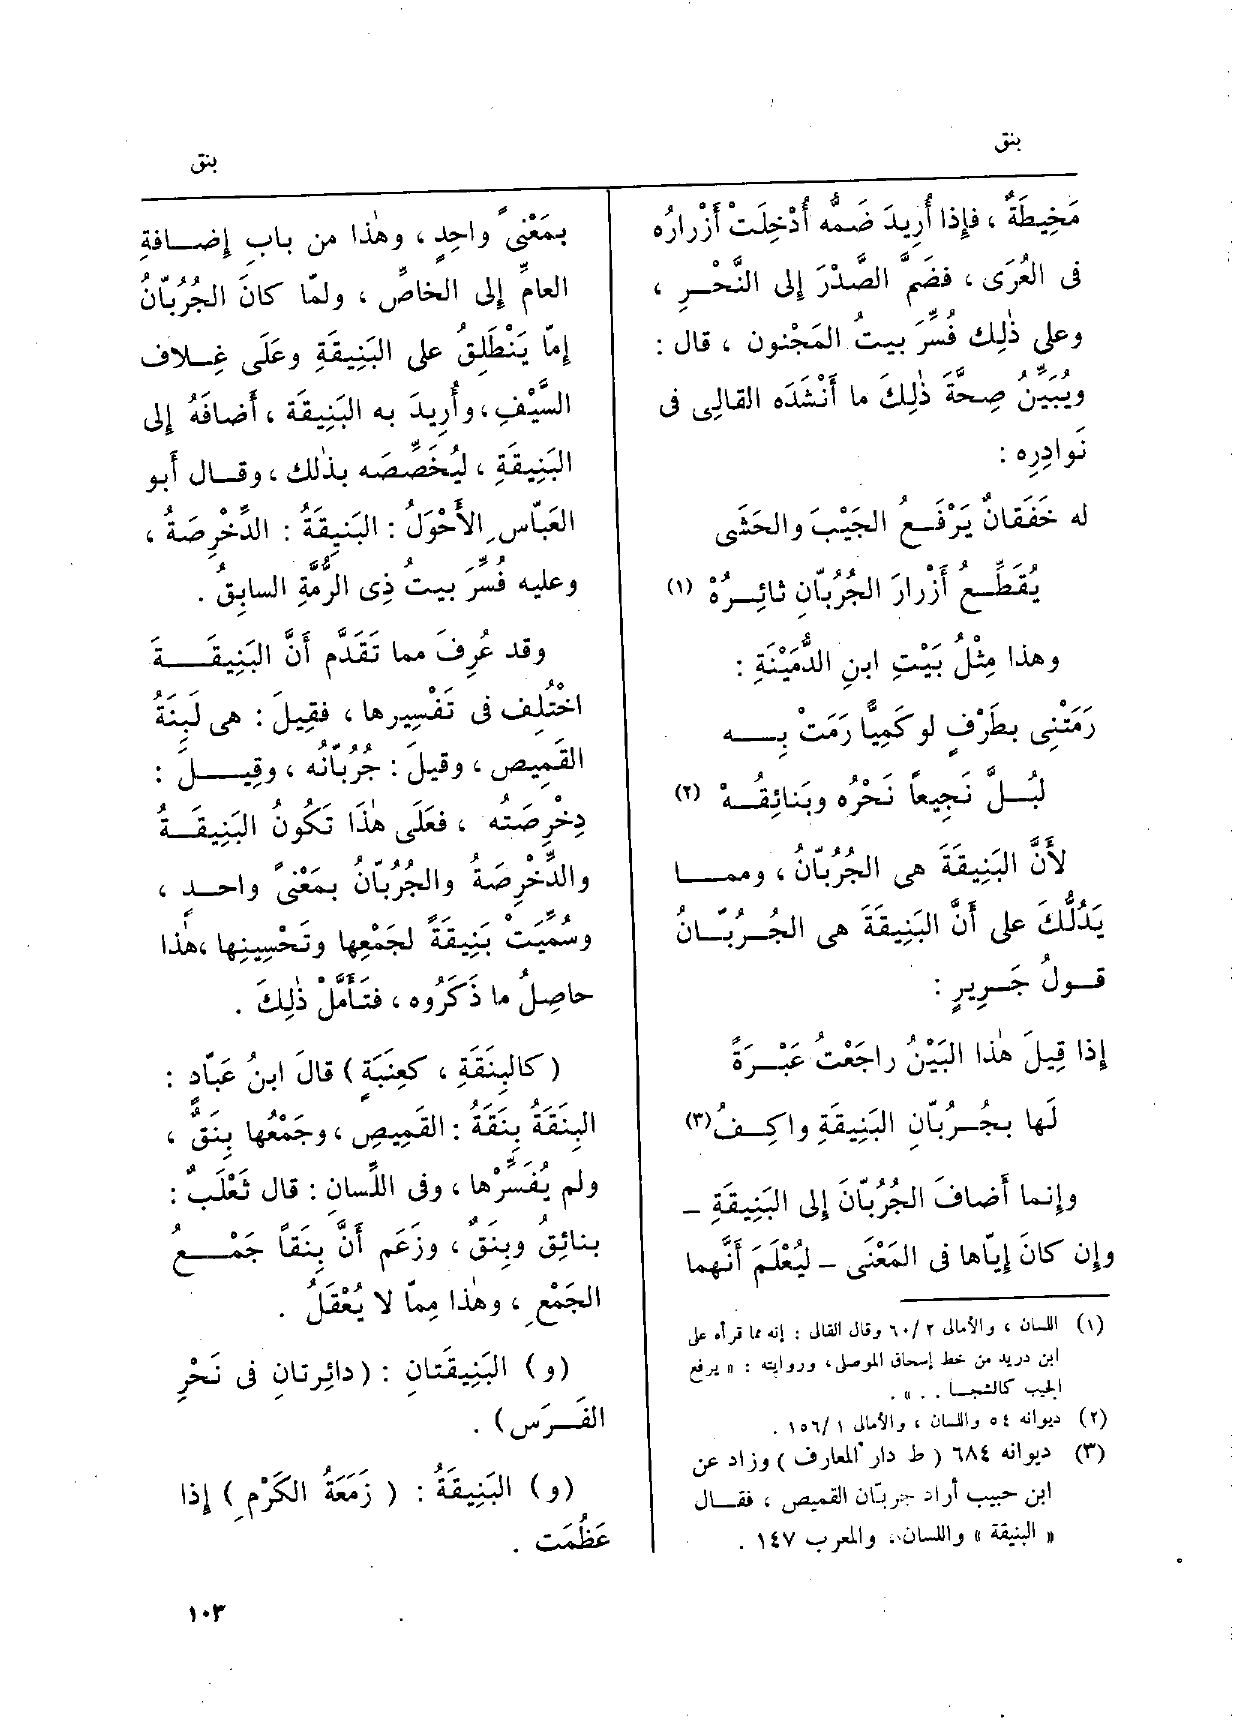 بنق
بنق
مَخِيطَةٌ ، فإِذا أُرِيدَ ضَمُّه أُدْخِلَتْ أَزْرارُه
فى العُرَى ، فضَمَّ الصَّدْرَ إلى النَّحْرِ ،
وعلى ذٰلِك فُسِّرَ بيتُ المَجْنون ، قال :
ويُبَيِّنُ صِحَّةَ ذٰلِكَ ما أَنْشَدَه القالِى فى
نَوادِرِه :
له خَفَقانٌ يَرْفَعُ الجَيْبَ والحَشَى
يُقَطِّعُ أَزْرارَ الجُرُبّانِ ثائِرُهْ (١)
وهذا مِثْلُ بَيْتِ ابنِ الدُّمَيْنَةِ :
رَمَتْنِى بطَرْفٍ لو كَمِيًّا رَمَتْ بِه
لبُلَّ نَجِيعاً نَحْرُه وبَنائِقُهْ (٢)
لأَنَّ البَنِيقَةَ هى الجُرُبّانُ ، ومما
يَدُلُّكَ على أَنَّ البَنِيقَةَ هى الجُرُبّانُ
قولُ جَرِيرٍ :
إذا قِيلَ هٰذا البَيْنُ راجَعْتُ عَبْرَةً
لَها بجُرُبّانِ البَنِيقَةِ واكِفُ (٣)
وإنما أَضافَ الجُرُبّانَ إلى البَنِيقَةِ –
وإن كانَ إيّاها فى المَعْنَى – ليُعْلَمَ أَنَّهما
(١) اللسان ، والأمالى ٦٠/٢ وقال القالى : إنه مما قرأه على
ابن دريد من خط إسحاق الموصلى، وروايته : « يرفع
الجيب كالشجا . . » .
(٢) ديوانه ٥٤ واللسان ، والأمالى ١٥٦/١ .
(٣) ديوانه ٦٨٤ ( ط دار المعارف ) وزاد عن
ابن حبيب أراد جربّان القميص ، فقال
« البنيقة » واللسان، والمعرب ١٤٧ .
بمَعْنىً واحِدٍ ، وهٰذا من بابِ إضافةِ
العامِّ إلى الخاصِّ ، ولمّا كانَ الجُرُبّانُ
إمّا يَنْطَلِقُ على البَنِيقَةِ وعَلَى غِلاف
السَّيْفِ، وأُرِيدَ به البَنِيقَة ، أَضافَهُ إلى
البَنِيقَةِ ، ليُخَصِّصَه بذٰلك ، وقال أبو
العَبّاسِ الأَحْوَلُ : البَنِيقَةُ : الدِّخْرِصَةُ ،
وعليه فُسِّرَ بيتُ ذِى الرُّمَّةِ السابقُ .
وقد عُرِفَ مما تَقَدَّم أَنَّ البَنِيقَةَ
اخْتُلِف فى تَفْسِيرِها ، فقِيلَ : هى لَبِنَةُ
القَمِيص ، وقيلَ : جُرُبّانُه ، وقِيلَ :
دِخْرِصَتُه ، فعَلَى هٰذَا تَكُونُ البَنِيقَةُ
والدِّخْرِصَةُ والجُرُبّانُ بمَعْنىً واحدٍ ،
وسُمِّيَتْ بَنِيقَةً لجَمْعِها وتَحْسِينِها ،هٰذا
حاصِلُ ما ذَكَرُوه ، فتَأَمَّلْ ذٰلِكَ .
( كالبِنَقَةِ ، كعِنَبَةٍ ) قالَ ابنُ عَبّادٍ :
البِنَقَةُ بِنَقَةُ : القَمِيصِ ، وجَمْعُها بِنَقٌ ،
ولم يُفَسِّرْها ، وفى اللِّسانِ : قال ثَعْلَبٌ :
بنائِقُ وبِنَقٌ ، وزَعَم أَنَّ بِنَقاً جَمْعُ
الجَمْعِ ، وهٰذا مِمّا لا يُعْقَلُ .
(و) البَنِيقَتانِ : (دائِرتانِ فى نَحْرِ
الفَرَس) .
(و) البَنِيقَةُ : ( زَمَعَةُ الكَرْمِ ) إذا
عَظُمَت .
١٠٣